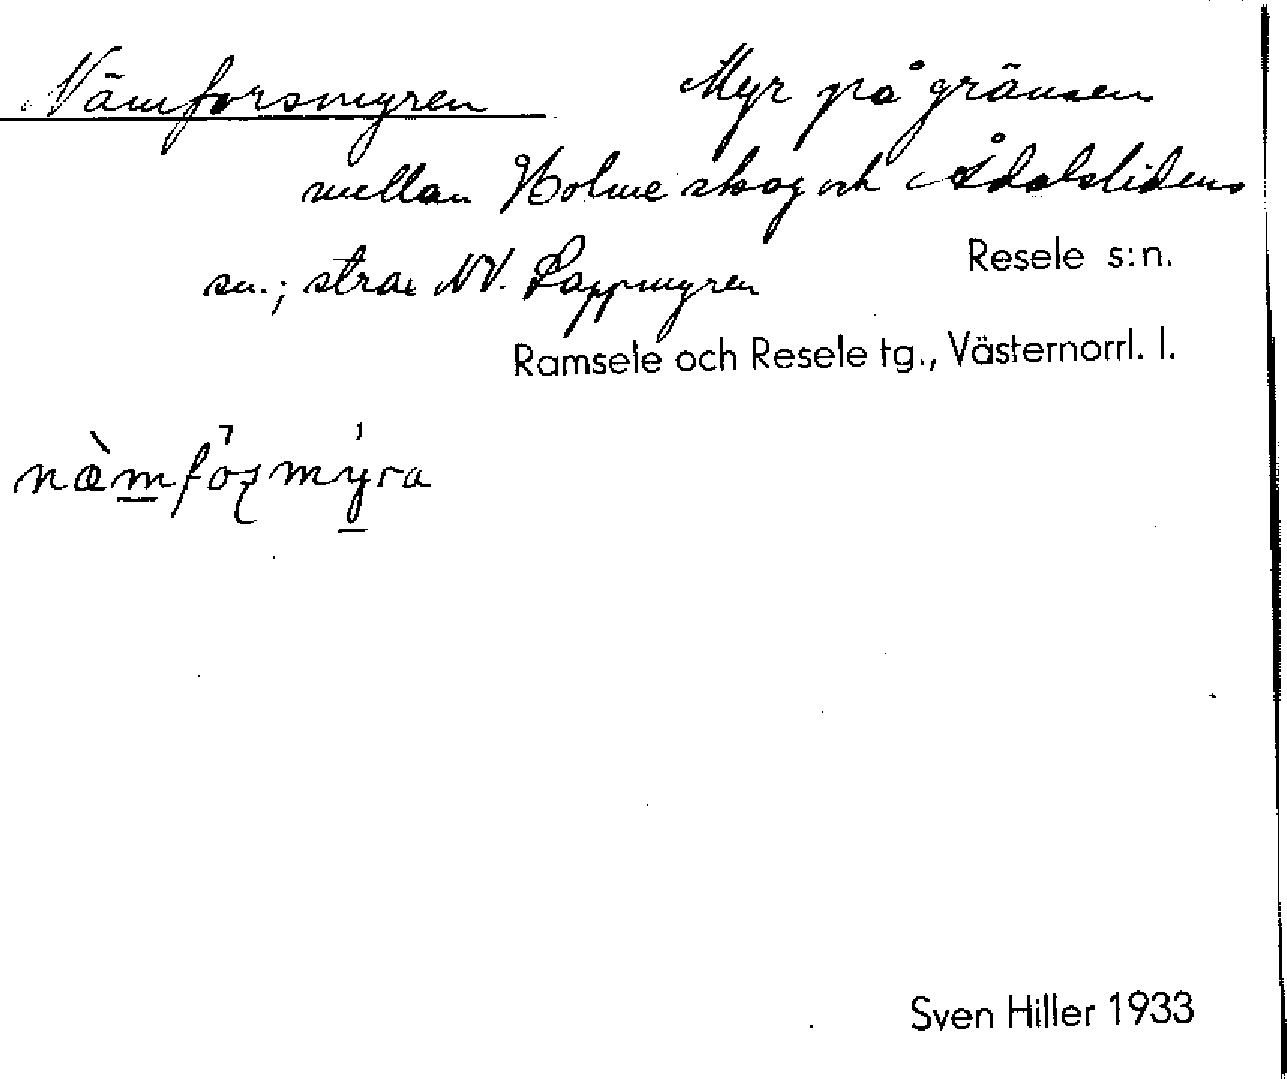 Nämforsmyren Myr på gränsen
mellan Holme skog och Ådalslidens
sn.; strax NV. Lappmyren
Resele s:n.
Ramsele och Resele tg., Västernorrl. l.
næ̀mfǫʒmýra
Sven Hiller 1933